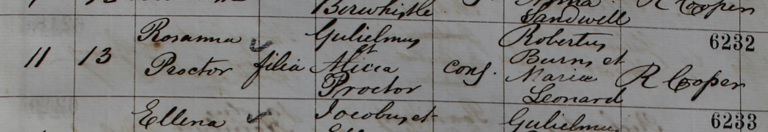 Birwhistle Sandwell R Cooper
Rosanna Gulielmus Robertus 6232
11 13 Proctor filia et Alicia conj. Burns et Maria R Cooper
Proctor Leonard
Ellena Jacobus et Gulielmus 6233